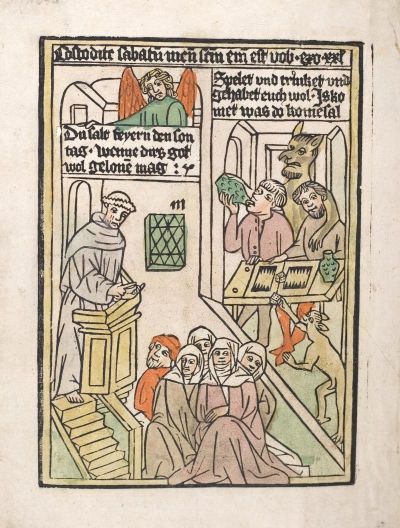 Costodite sabatū meū scm em est vob · exo · xxi
Du salt feyern den son
tag · wenne dirs got
wol gelonē mag :
Spelet vnd trinket vnd
gehabet euch wol · Is ko
met was do komē sal
m